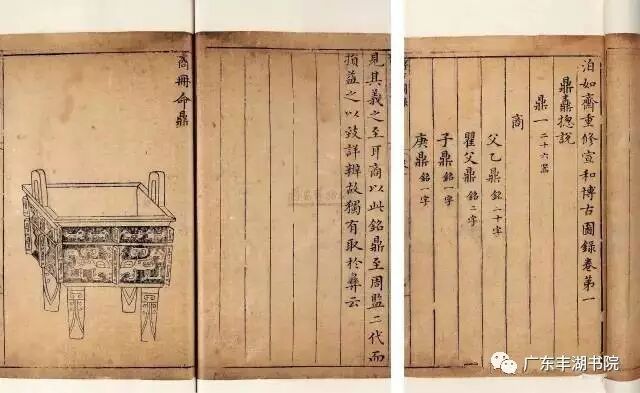 泊如齋重修宣和博古圖錄卷第一
鼎鼒揔說
鼎一二十六器
商
父乙鼎銘二十字
瞿父鼎銘二字
子鼎銘一字
庚鼎銘一字
見其義之至耳商以此銘鼎至周監二代而
損益之以致詳辨故獨有取於彝云
商冊命鼎
广东丰湖书院